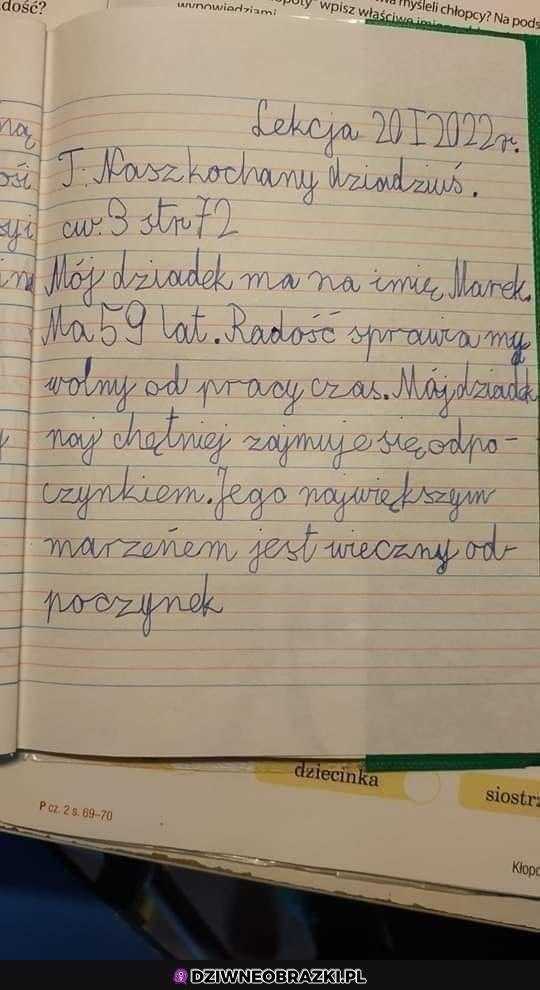 dość?
myśleli chłopcy? Na pods
wypowiedziami
wpisz właściwe
ną
ości
syi
Lekcja 20 I 2022r.
T: Nasz kochany dziadziuś.
ćw. 3 str 72
Mój dziadek ma na imię Marek.
Ma 59 lat. Radość sprawia my
wolny od pracy czas. Mój dziadek
naj chętniej zajmuje się odpo-
czynkiem. Jego największym
marzeńem jest wieczny od-
poczynek
dziecinka
siostrz
P cz. 2 s. 69–70
Kłopo
DZIWNEOBRAZKI.PL